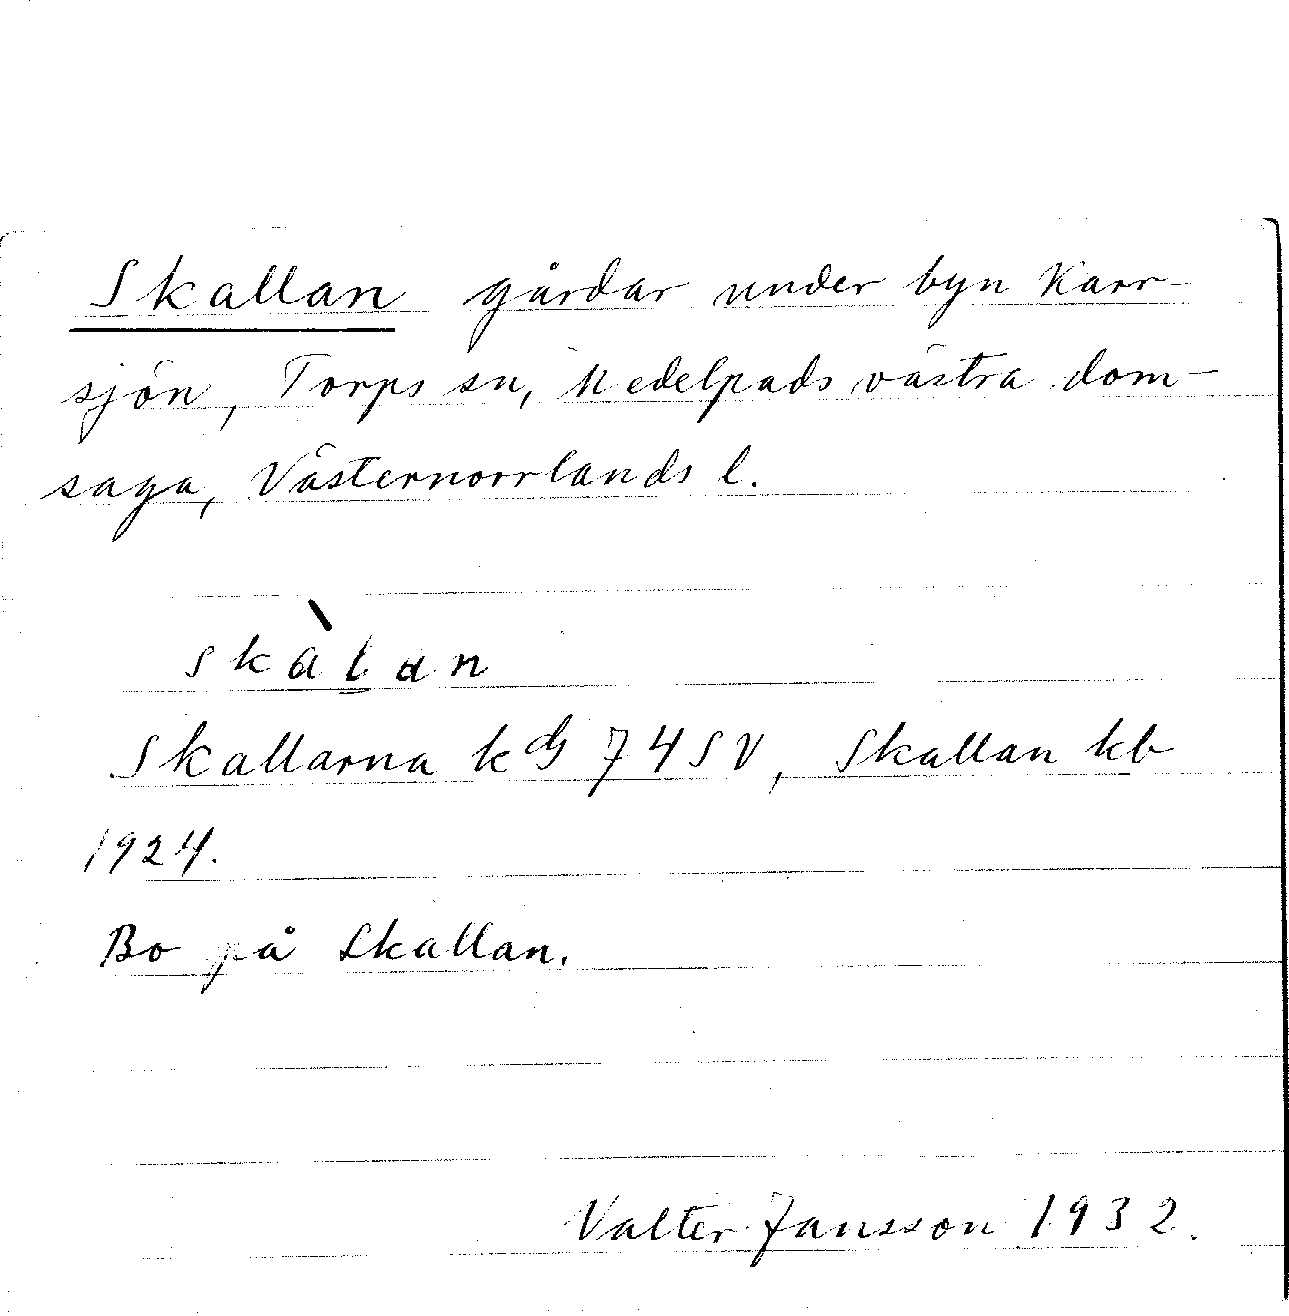 Skallan gårdar under byn Karr-
sjön, Torps sn, Medelpads västra dom-
saga, Västernorrlands l.
skàlan
Skallarna kds 74 SV, Skallan kb
1924.
Bo på Skallan.
Valter Jansson 1932.